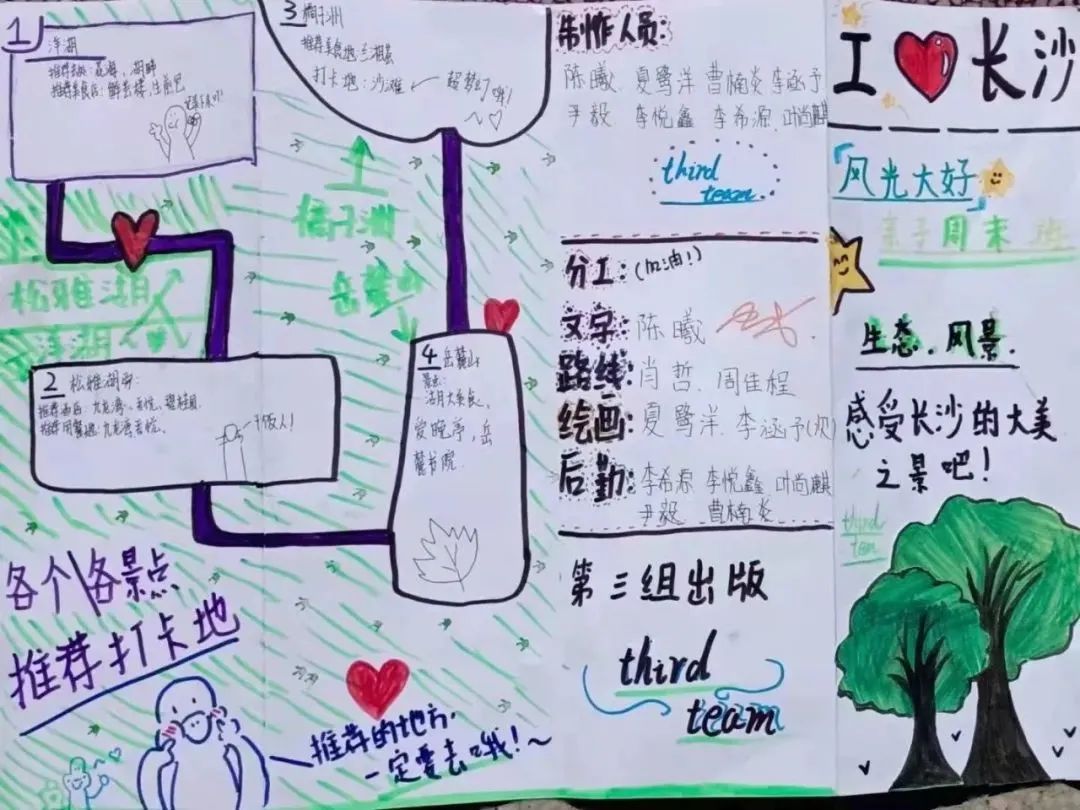 1
洋湖
推荐去处：花海、湖畔
3 橘子洲
打卡地：沙滩
超梦幻哦！
橘子洲
岳麓山
松雅湖
洋湖
2 松雅湖南：
推荐酒店：九龙湾、吾悦、碧桂园
推荐用餐地：九龙湾吾悦、
干饭人！
4 岳麓山
景点：
爱晚亭，岳
麓书院
各个各景点
推荐打卡地
推荐的地方，
一定要去哦！~
制作人员：
陈曦、夏鹭洋 曹楠炎 李涵予
尹毅 李悦鑫 李希源 叶尚麒
third
team
分工：(加油！)
文字：陈曦
路线：肖哲、周佳程
绘画：夏鹭洋、李涵予(次)
后勤：李希源 李悦鑫 叶尚麒
尹毅 曹楠炎
第三组出版
third
team
I 长沙
风光大好
亲子周末
生态、风景、
感受长沙的大美
之景吧！
third